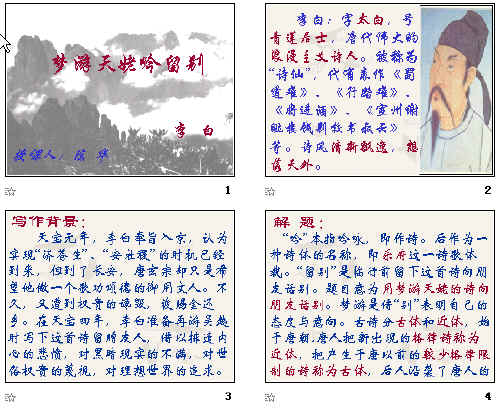 梦游天姥吟留别
李 白
授课人：陈 华
1
李白：字太白，号
青莲居士，唐代伟大的
浪漫主义诗人。被称为
“诗仙”，代表作《蜀
道难》、《行路难》、
《将进酒》、《宣州谢
朓楼饯别校书叔云》
等。诗风清新飘逸，想
落天外。
2
写作背景：
天宝元年，李白奉旨入京，认为
实现“济苍生”、“安社稷”的时机已经
到来，但到了长安，唐玄宗却只是希
望他做一个歌功颂德的御用文人。不
久，又遭到权贵的谗毁，被赐金还
乡。在天宝四年，李白准备再游吴越
时写下这首诗留赠友人，借以排遣内
心的悲愤，对黑暗现实的不满，对世
俗权贵的蔑视，对理想世界的追求。
3
解 题：
“吟”本指吟咏，即作诗。后作为一
种诗体的名称，即乐府这一诗歌体
裁。“留别”是临行前留下这首诗向朋
友话别。题目意为用梦游天姥的诗向
朋友话别。梦游是借“别”表明自己的
态度与意向。古诗分古体和近体，始
于唐朝。唐人把新出现的格律诗称为
近体，把产生于唐以前的较少格律限
制的诗称为古体，后人沿袭了唐人的
4